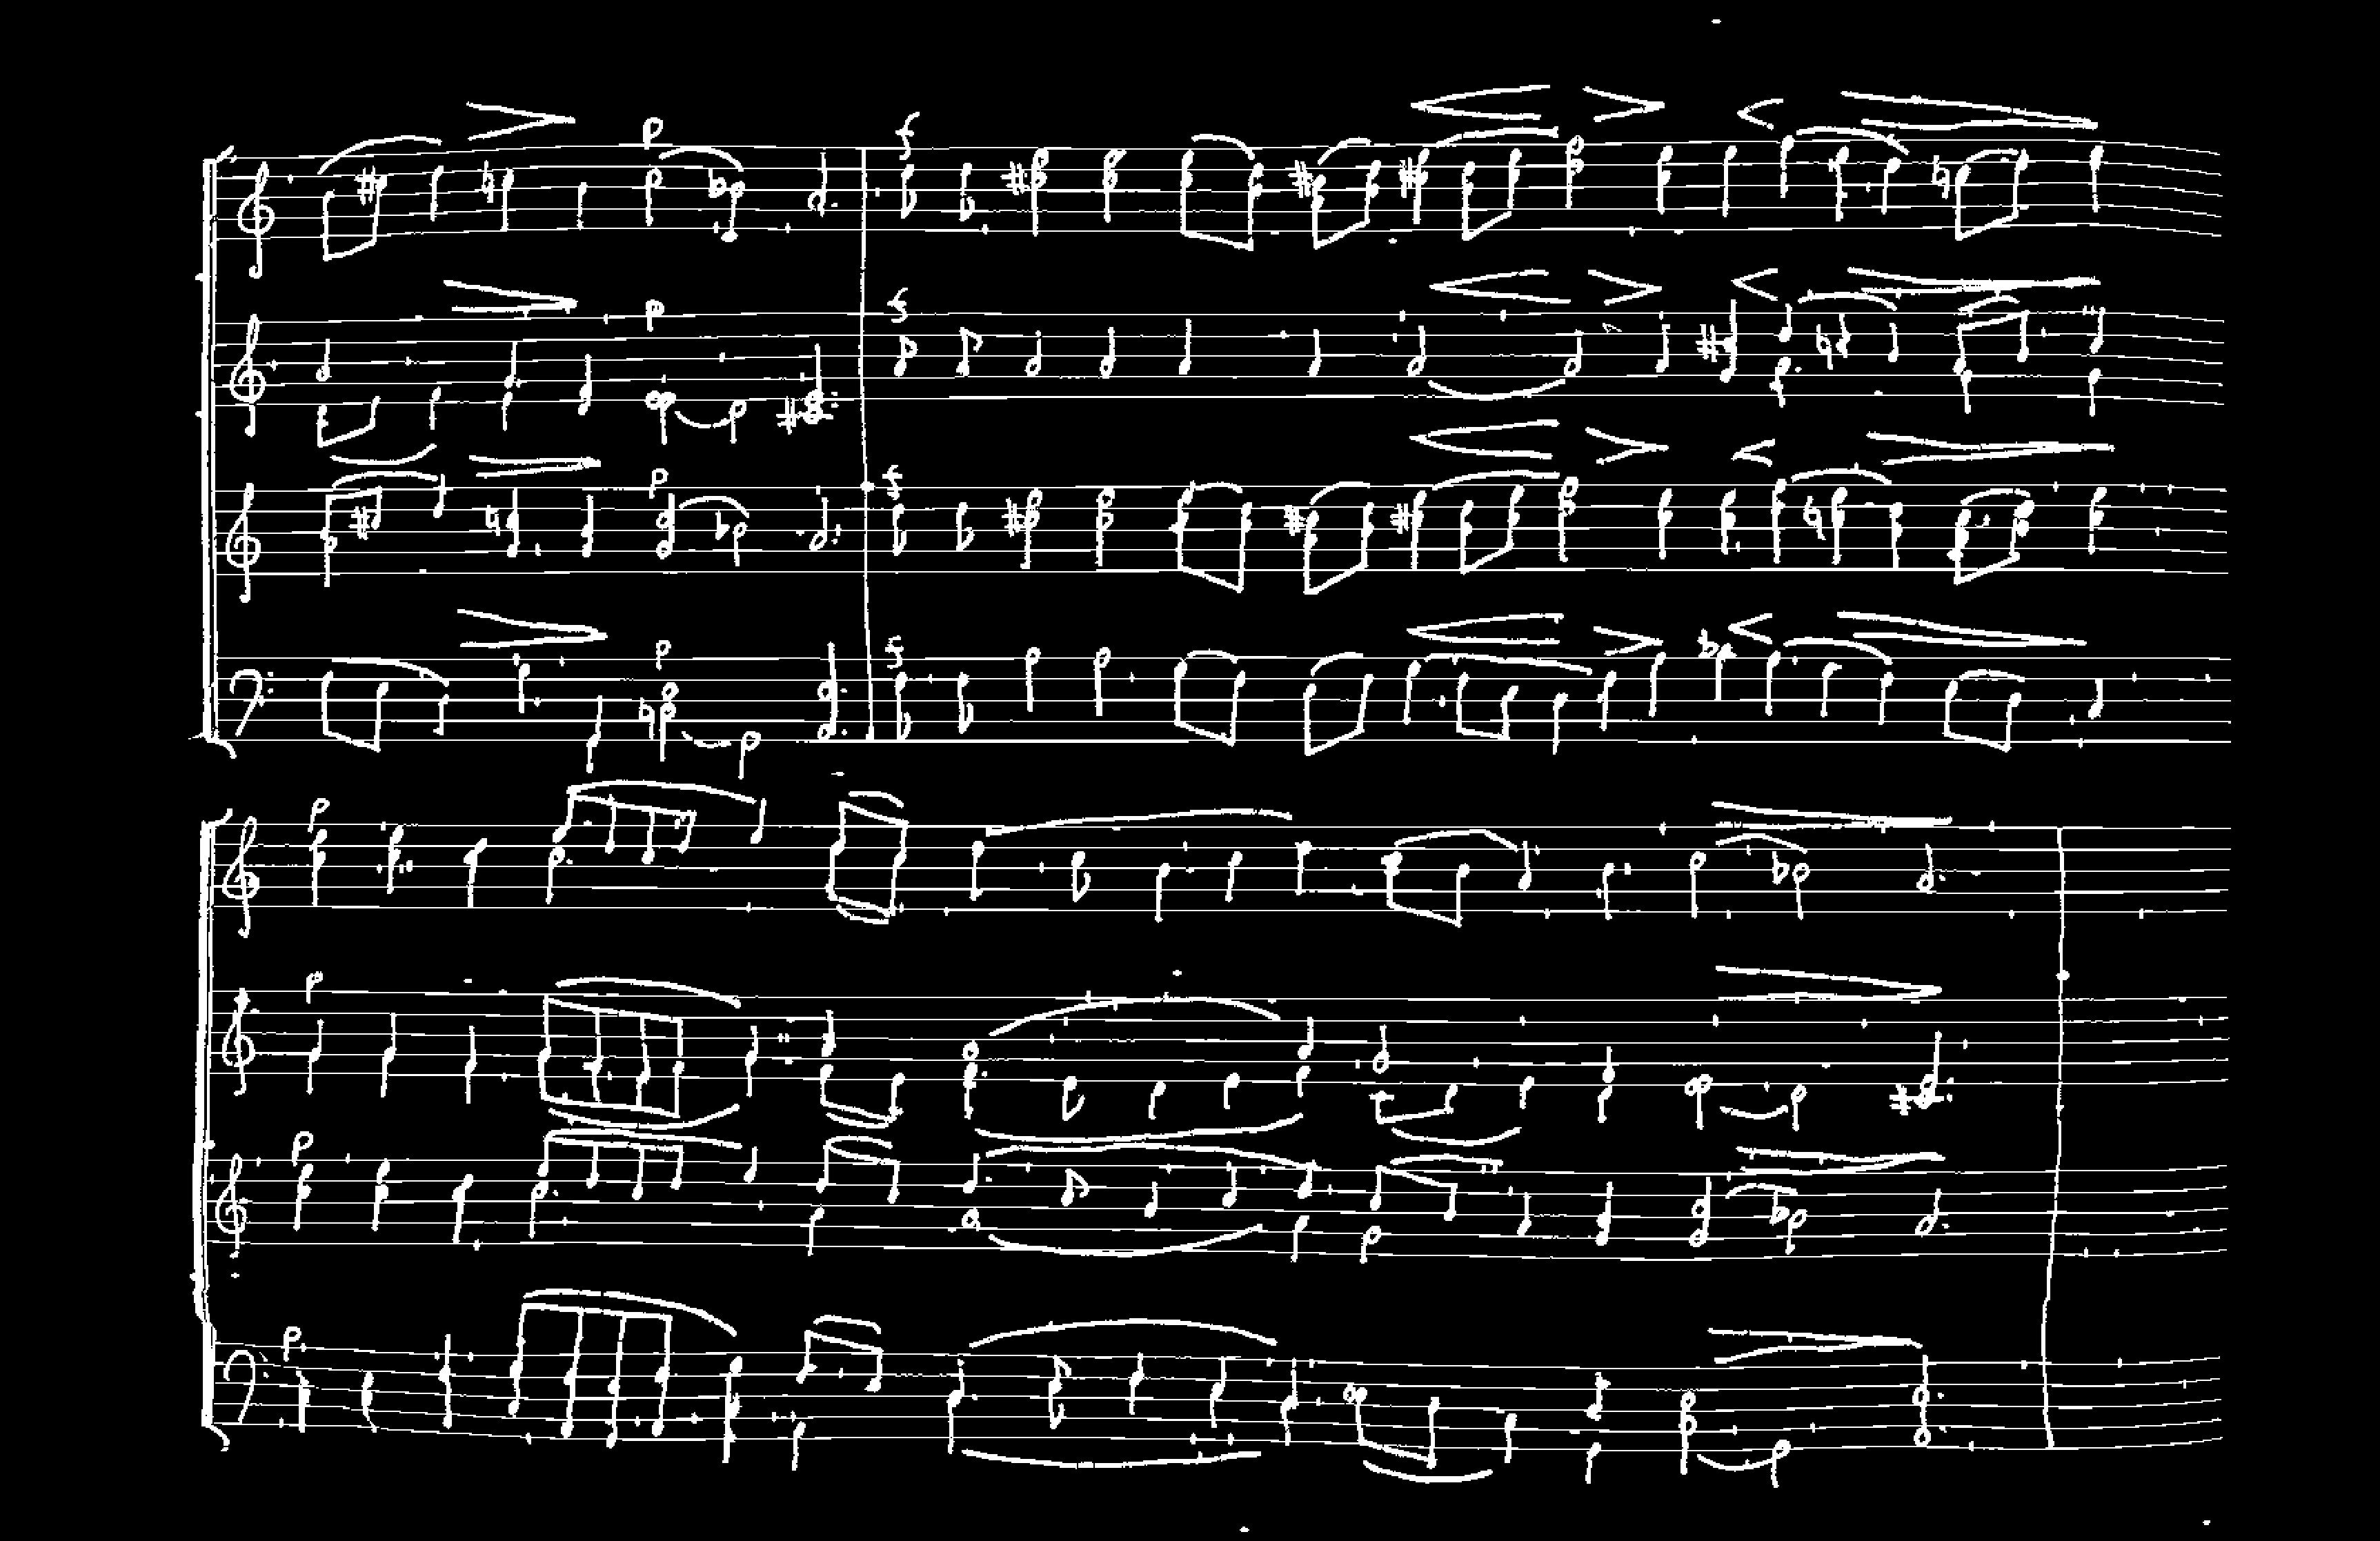 p
f
p
f
p
f
p
f
p
p
p
p